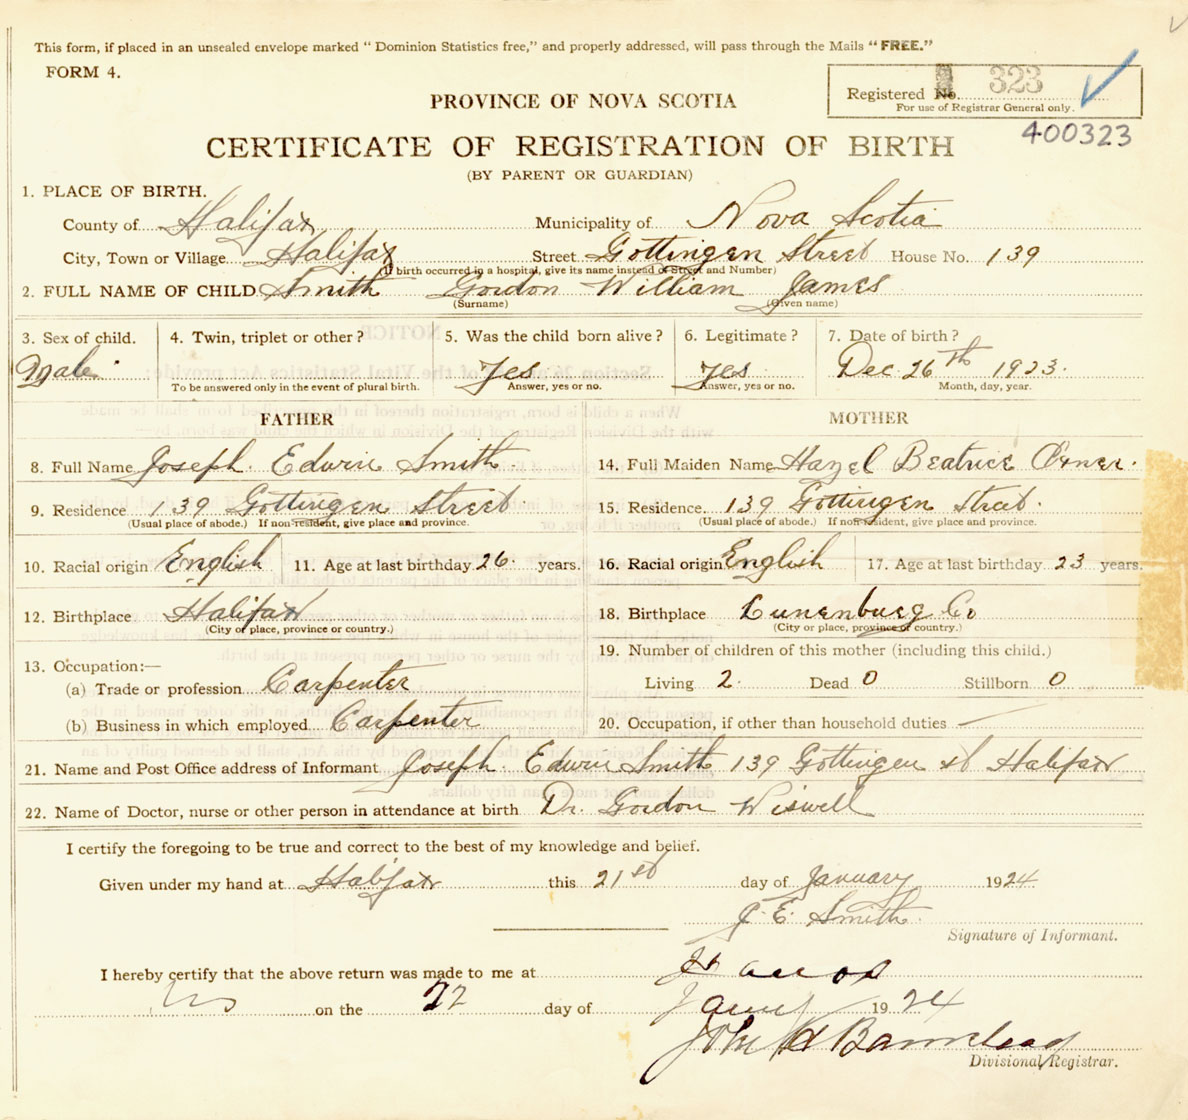 This form, if placed in an unsealed envelope marked "Dominion Statistics free," and properly addressed, will pass through the Mails "FREE."
FORM 4.
Registered No. 323
For use of Registrar General only.
PROVINCE OF NOVA SCOTIA
400323
CERTIFICATE OF REGISTRATION OF BIRTH
(BY PARENT OR GUARDIAN)
1. PLACE OF BIRTH.
County of Halifax Municipality of Nova Scotia
City, Town or Village Halifax Street Gottingen Street House No. 139
(If birth occurred in a hospital, give its name instead of Street and Number)
2. FULL NAME OF CHILD Smith Gordon William James
(Surname) (Given name)
3. Sex of child. 4. Twin, triplet or other? 5. Was the child born alive? 6. Legitimate? 7. Date of birth?
Male Yes Yes Dec. 26th 1923.
To be answered only in the event of plural birth. Answer, yes or no. Answer, yes or no. Month, day, year.
FATHER MOTHER
8. Full Name Joseph Edwin Smith 14. Full Maiden Name Hazel Beatrice
9. Residence 139 Gottingen Street 15. Residence 139 Gottingen Street
(Usual place of abode.) If non-resident, give place and province. (Usual place of abode.) If non-resident, give place and province.
10. Racial origin English 11. Age at last birthday 26 years. 16. Racial origin English 17. Age at last birthday 23 years.
12. Birthplace Halifax 18. Birthplace Lunenburg Co
(City or place, province or country.) (City or place, province or country.)
13. Occupation:— 19. Number of children of this mother (including this child.)
(a) Trade or profession Carpenter Living 2 Dead 0 Stillborn 0
(b) Business in which employed Carpenter 20. Occupation, if other than household duties —
21. Name and Post Office address of Informant Joseph Edwin Smith 139 Gottingen st Halifax
22. Name of Doctor, nurse or other person in attendance at birth Dr. Gordon Wiswell
I certify the foregoing to be true and correct to the best of my knowledge and belief.
Given under my hand at Halifax this 21st day of January 1924
J. E. Smith
Signature of Informant.
I hereby certify that the above return was made to me at
on the 22 day of 1924
John H Barnstead
Divisional Registrar.